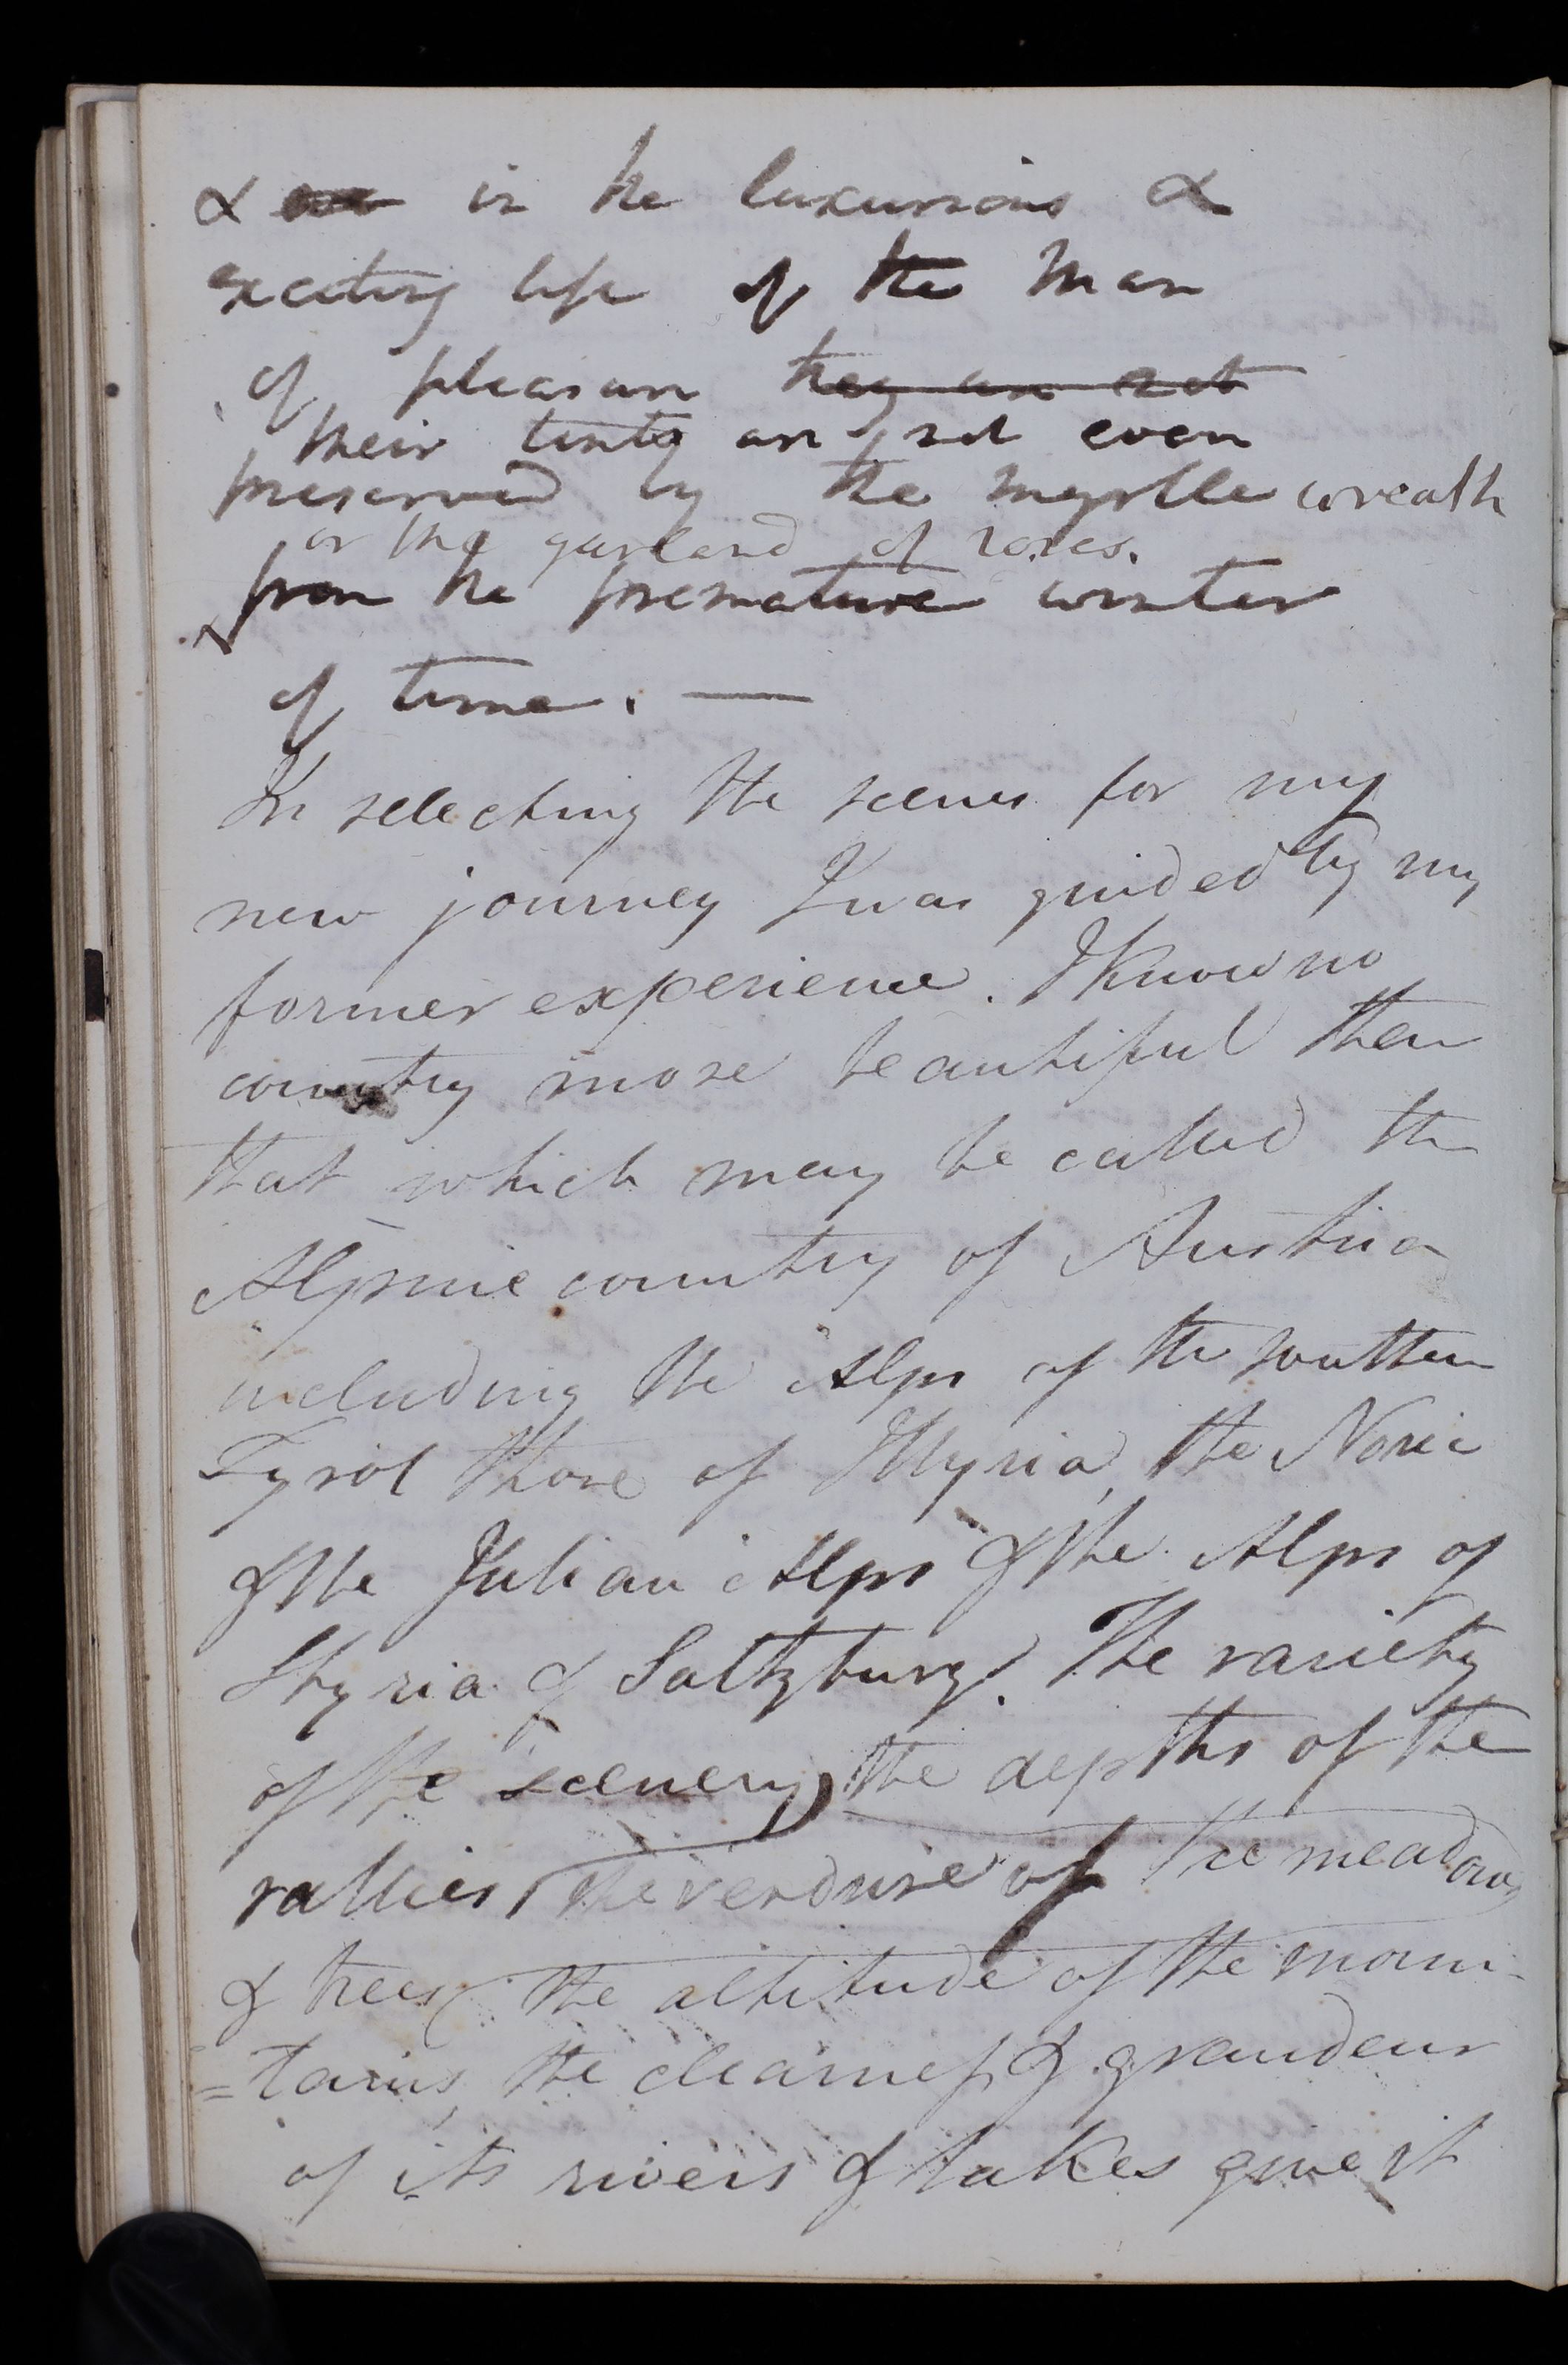 & in the luxurious &
exciting life of the Man
of pleasure they are not
their tints are not even
preserved by the myrtle wreath
or the garland of roses.
from the premature winter
of time. —
In selecting the scenes for my
new journey I was guided by my
former experience. I know no
country more beautiful than
that which may be called the
Alpine country of Austria
including the Alps of the southern
Tyrol those of Illyria, the Noric
& the Julian Alps & the Alps of
Styria & Saltzburg. The variety
of the scenery, the depths of the
vallies, the verdure of the meadows
& trees, the altitude of the moun-
=tains, the clearness & grandeur
of its rivers & lakes give it